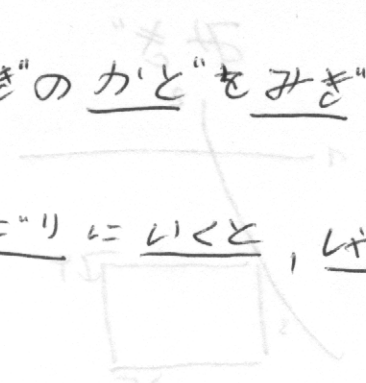 ぎの かどを みぎ
に いくと,